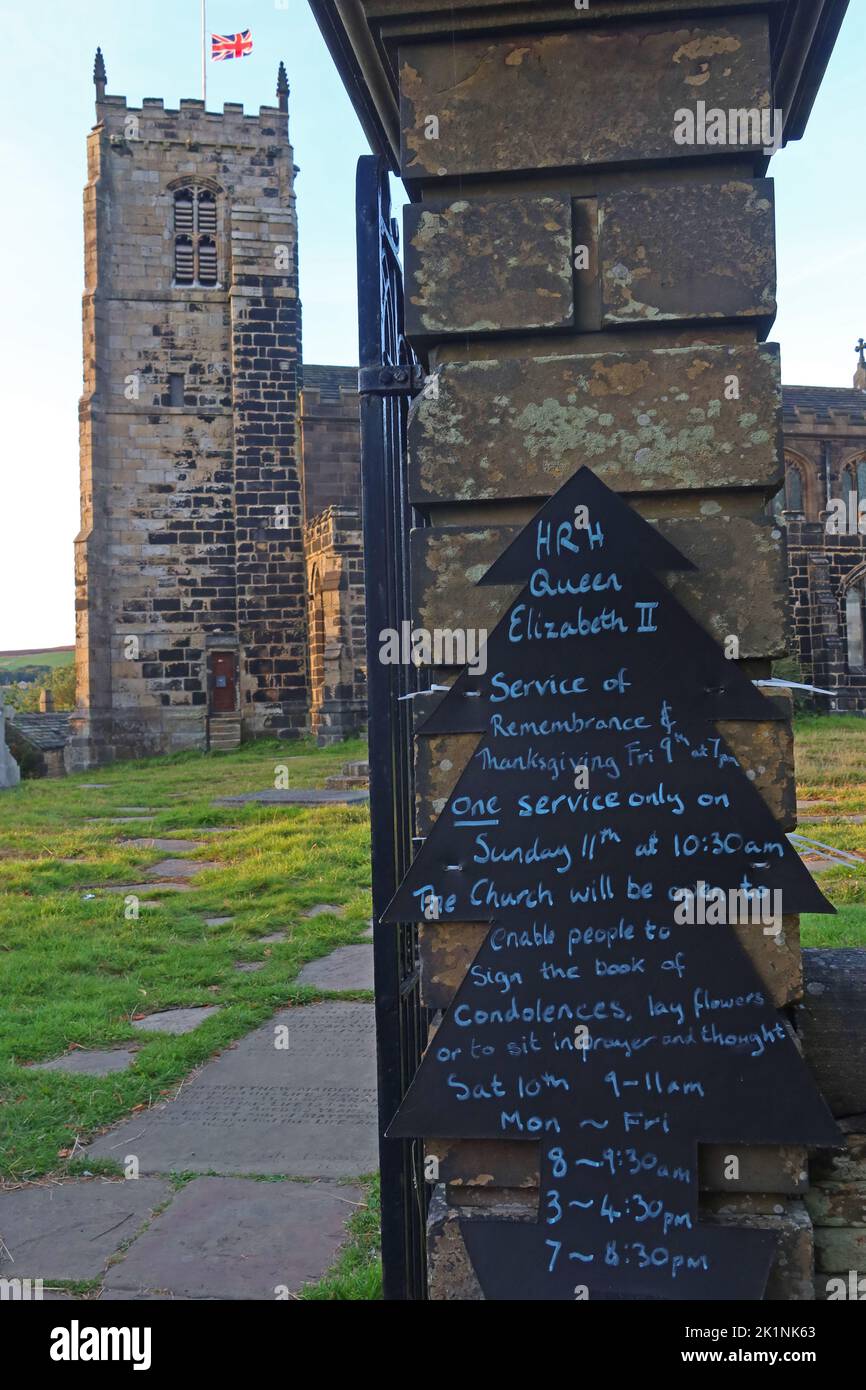 HRH
Queen
Elizabeth II
Service of
Remembrance &
Thanksgiving Fri 9th at 7pm
one service only on
Sunday 11th at 10:30am
The Church will be open to
enable people to
Sign the book of
Condolences, lay flowers
or to sit in prayer and thought
Sat 10th 9-11am
Mon ~ Fri
8~9:30am
3~4:30pm
7~8:30pm
alamy
Image ID: 2K1NK63
www.alamy.com